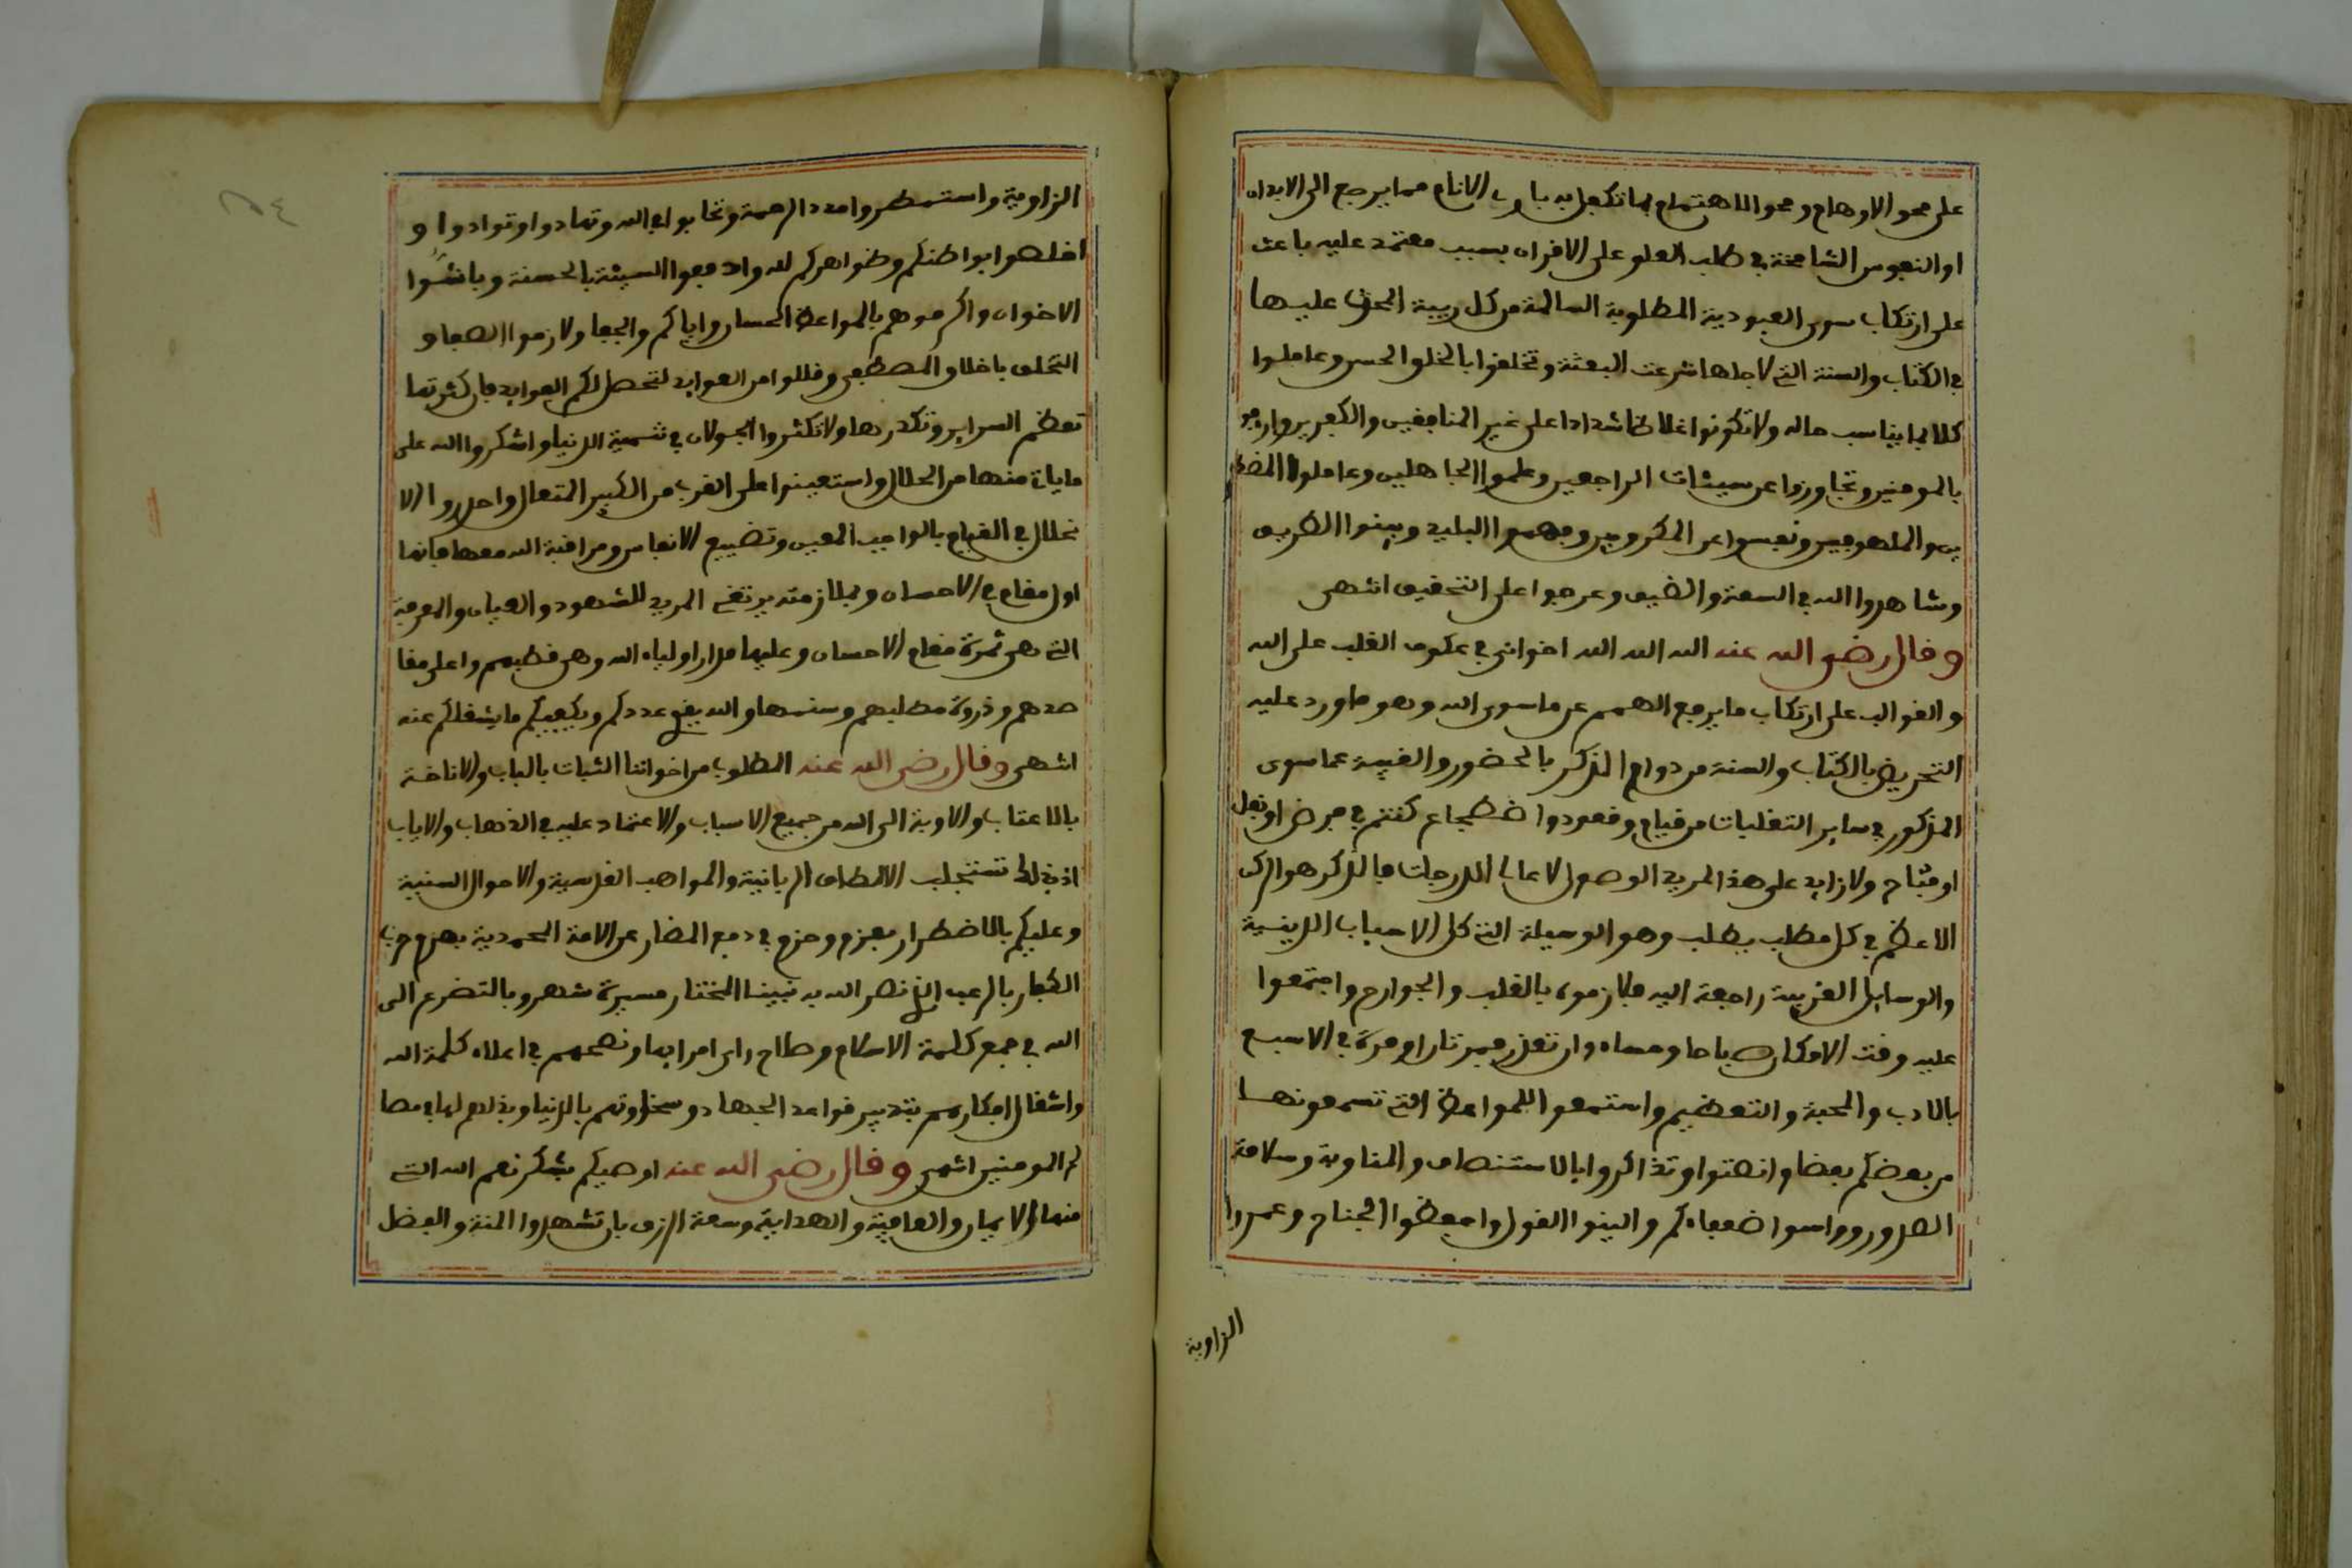 على محو الاوهام ومحو الاهتمام بما تكفل به بارئ الانام مما يرجع الى الابدان
او النفوس الشامخة في طلب العلو على الاقران بسبب معتمد عليه باعث
على ارتكاب سوى العبودية المطلوبة السالمة من كل ريبة المحرض عليها
في الكتاب والسنة التي لاجلها شرعت البعثة وتخلقوا بالخلق الحسن وعاملوا
كلا بما يناسب حاله ولا تكونوا غلاظا شدادا على غير المنافقين والكفرين وارفقو
بالمومنين وتجاوزوا عن سيئات الراجعين وعلموا الجاهلين وعاملوا المضطر
ين والملهوفين ونفسوا عن المكروبين وفهموا البليد وبينوا الطريق
وشاهدوا الله في السعة والضيق وعرجوا على التحقيق انتهى
وقال رضي الله عنه الله الله الله اخواني في عكوف القلب على الله
والقوالب على ارتكاب ما يرفع الهمم عن ما سوى الله وهو ما ورد عليه
التحريض بالكتاب والسنة من دوام الذكر بالحضور والغيبة عما سوى
المذكور في ساير التقلبات من قيام وقعود واضطجاع كنتم في مرض او نقل
او فتاح ولا زايد على هذا لمريد الوصول لاعالى الدرجات فالذكر هو الركن
الاعظم في كل مطلب يطلب وهو الوسيلة التي كل الاسباب الدينية
والوسايل القريبة راجعة اليه فلازموه بالقلب والجوارح واجتمعوا
عليه وقت الامكان صباحا ومساء وان تعذر فمرتان او مرة في الاسبوع
بالادب والمحبة والتعظيم واستمعوا للمواعظ التي تسمعونها
من بعضكم بعضا وانصتوا وتذاكروا بالاستنصاف والمناوبة وسلامة
الصدور وواسوا ضعفاءكم والينوا القول واخفظوا الجناح وعمروا
الزاوية
الزاوية واستمطروا مدد الرحمة وتحابوا في الله وتهادوا وتوادوا و
اخلصوا بواطنكم وظواهركم لله وادفعوا السيئة بالحسنة وباششوا
الاخوان واكرموهم بالمواعظ الحسان واياكم والجفا ولازموا الصفا و
التخلق باخلاق المصطفى وقللوا من العوايد لتحصل لكم الفوايد فان كثرتها
تعظم السراير وتكدرها ولا تكثروا الجولان في تنمية الدنيا واشكروا الله على
ما ياتي منها من الحلال واستعينوا على القرب من الكبير المتعال واحذروا الا
نحلال في القيام بالواجب المعين وتضييع الانفاس ومراقبة الله معها فانها
اول مقام في الاحسان وبملازمته يرتقي المريد للشهود والعيان والمعرفة
التي هي ثمرة مقام الاحسان وعليها مدار اولياء الله وهي قطبهم واعلى مقا
صدهم وذروة مطلبهم وسنمها والله يقوي عددكم ويكفيكم ما يشغلكم عنه
انتهى وقال رضي الله عنه المطلوب من اخواننا الثبات بالباب والاناخة
بالاعتاب والاوبة الى الله من جميع الاسباب والاعتماد عليه في الذهاب والاياب
اذ بذلك تستجلب الالطاف الربانية والمواهب القدسية والاحوال السنية
وعليكم بالاضطرار بعزم وحزم في دفع المضار عن الامة المحمدية بهزم حزب
الكفار بالرعب الذي نصر الله به نبينا المختار مسيرة شهر وبالتضرع الى
الله في جمع كلمة الاسلام وصلاح راي امرايها ونصحهم في اعلاء كلمة الله
واشغال افكارهم بتدبير قواعد الجهاد وسخاوتهم بالدنيا وبذلهم لها في مصا
لح المومنين انتهى وقال رضي الله عنه اوصيكم بشكر نعم الله التي
منها الايمان والعافية والهداية وسعة الرزق بان تشهدوا المنة والفضل